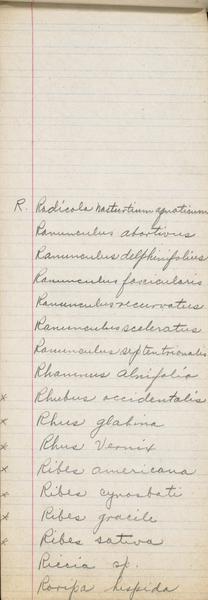 R. Radicola nasturtium aquaticum
Ranunculus abortivus
Ranunculus delphinifolius
Ranunculus fascicularis
Ranunculus recurvatus
Ranunculus sceleratus
Ranunculus septentrionalis
Rhamnus Alnifolia
x Rhubus occidentalis
x Rhus glabina
x Rhus Vernix
x Ribes americana
x Ribes cynosbati
x Ribes gracile
x Ribes sativa
Riccia sp.
Roripa hispida